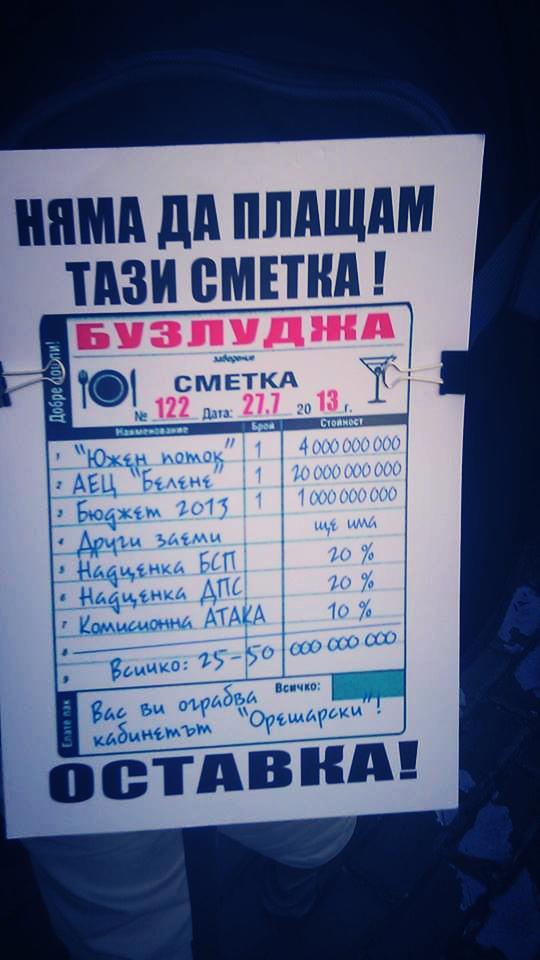 НЯМА ДА ПЛАЩАМ
ТАЗИ СМЕТКА!
Добре дошли!
БУЗЛУДЖА
заведение
СМЕТКА
№ 122 Дата: 27.7 20 13 г.
Наименование Брой Стойност
1 "Южен поток" 1 4 000 000 000
2 АЕЦ "Белене" 1 20 000 000 000
3 Бюджет 2013 1 1 000 000 000
4 Други заеми ще има
5 Надценка БСП 20 %
6 Надценка ДПС 20 %
7 Комисионна АТАКА 10 %
8
9 Всичко: 25-50 000 000 000
Елате пак
Всичко:
Вас ви ограбва
кабинетът "Орешарски"!
ОСТАВКА!